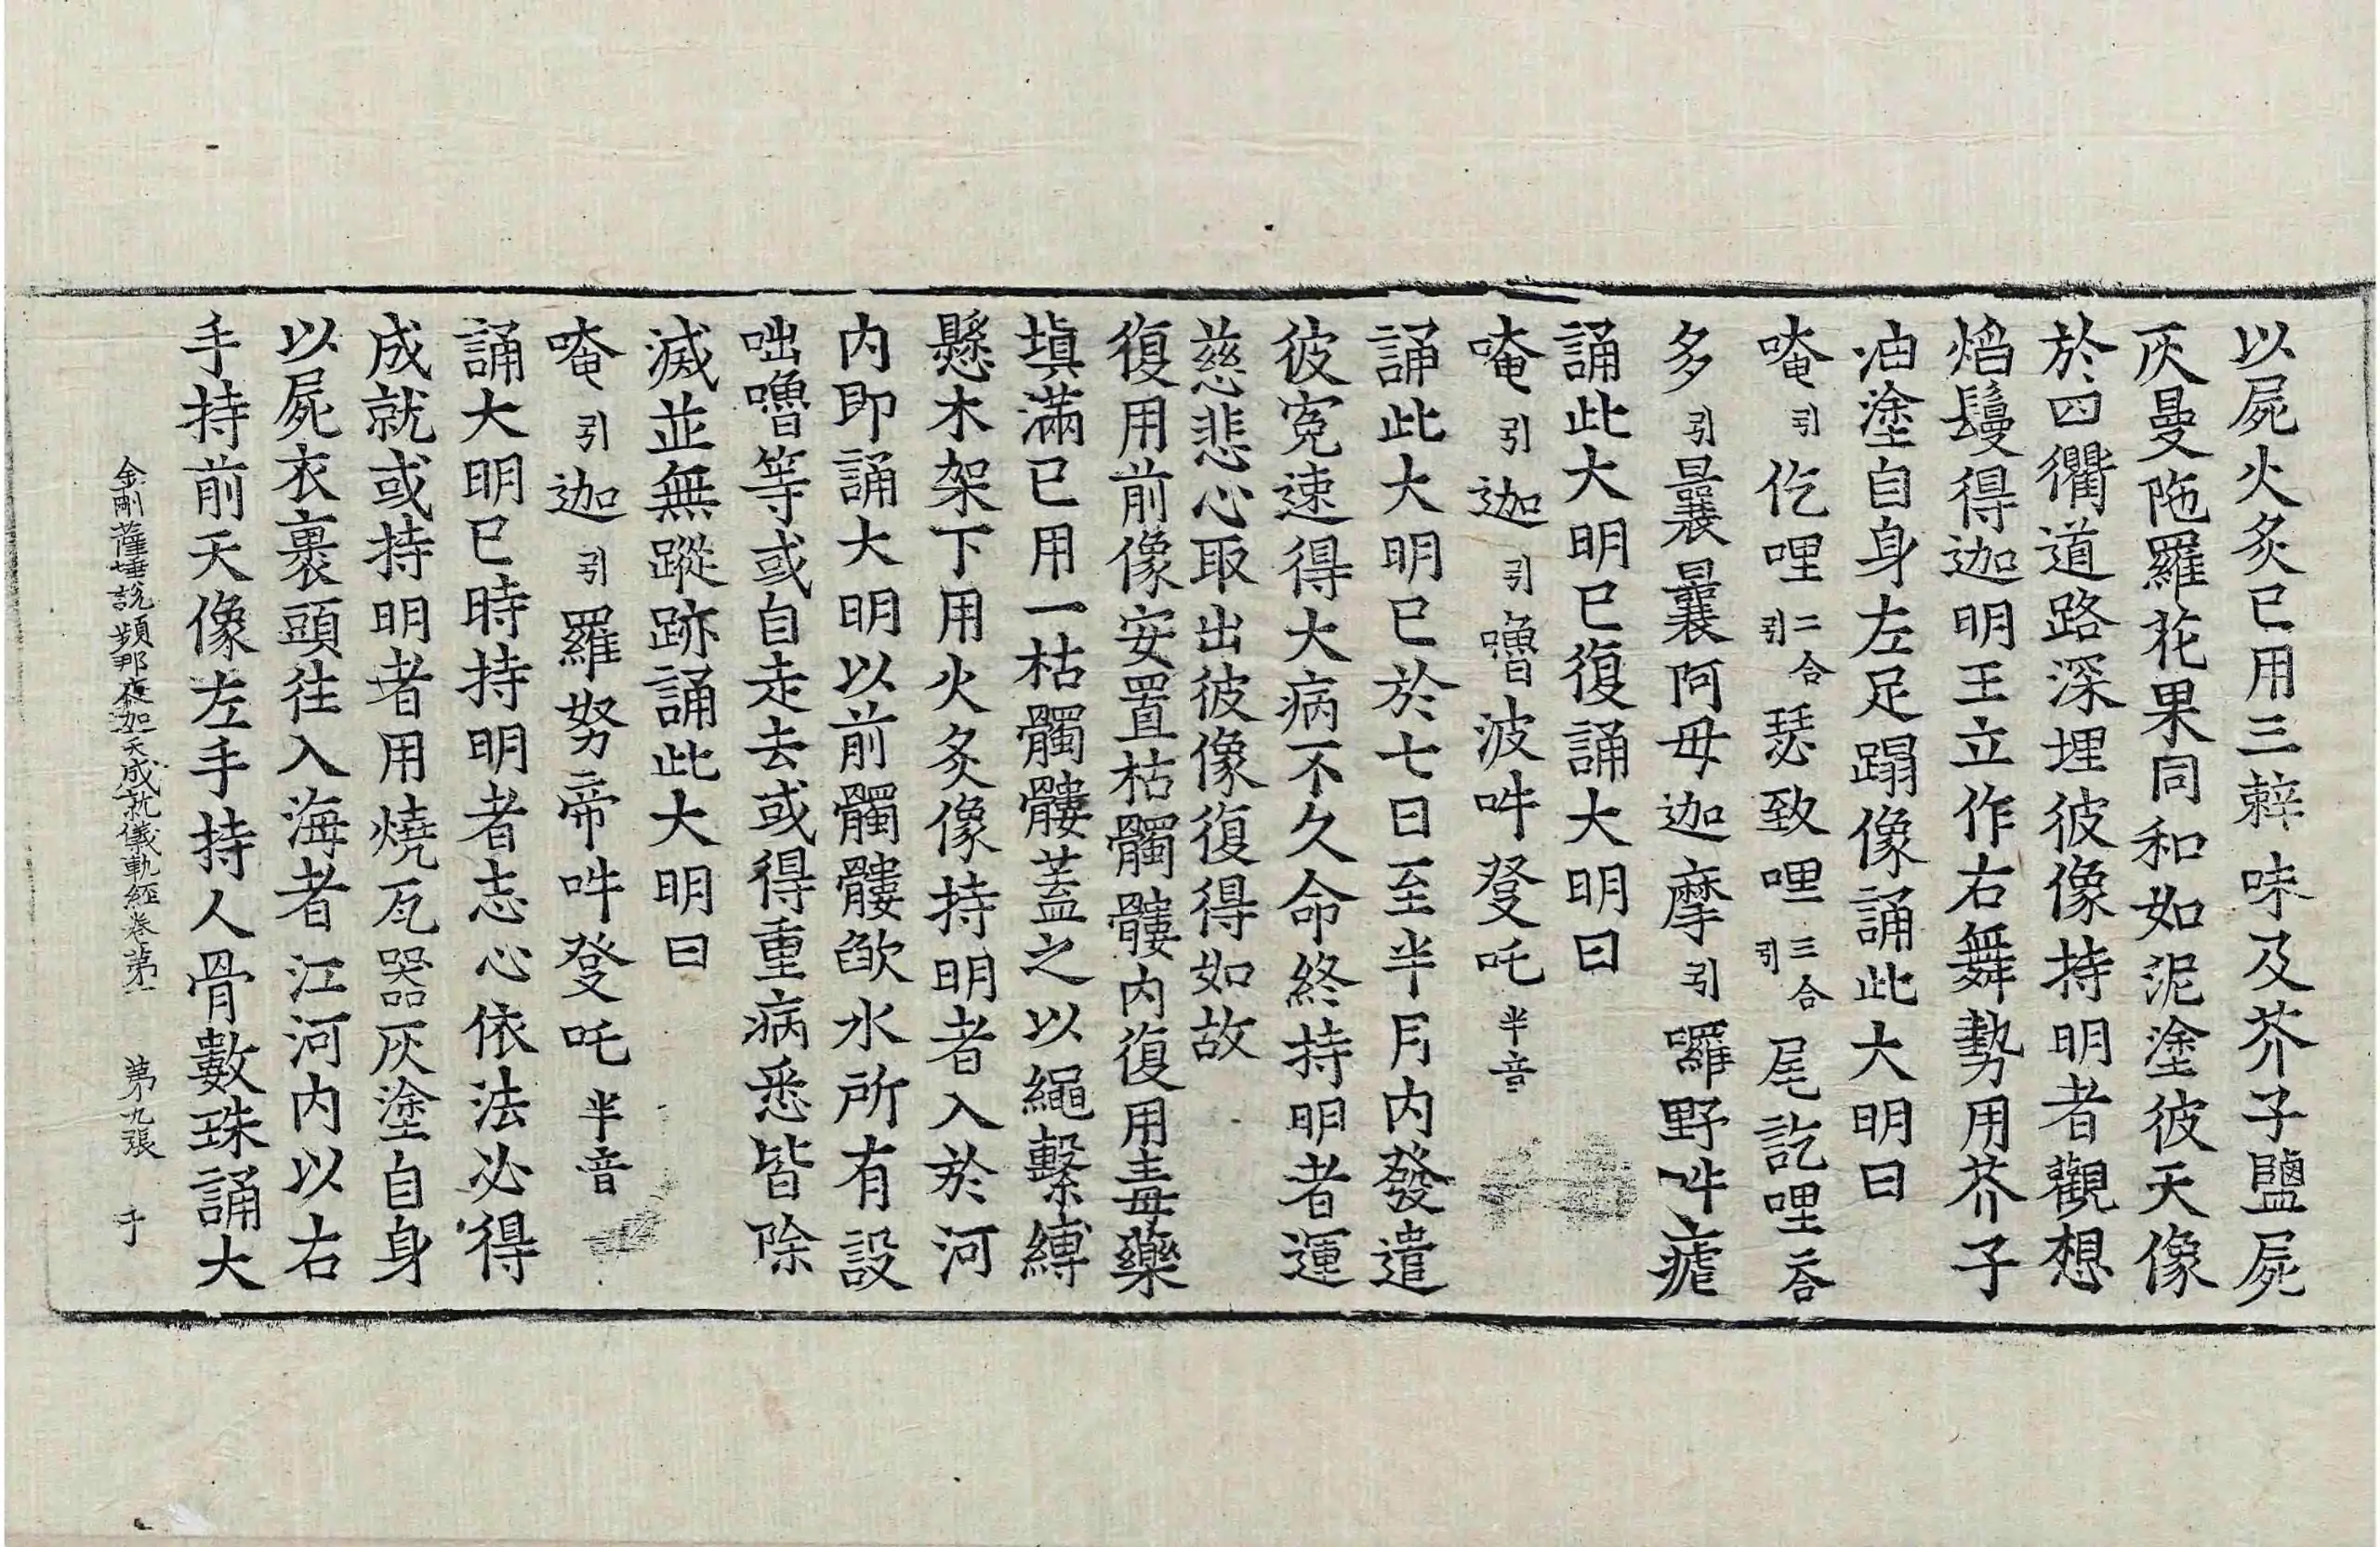 以屍火炙已用三辢味及芥子鹽屍
灰曼陁羅花果同和如泥塗彼天像
於四衢道路深埋彼像持明者觀想
焰鬘得迦明王立作右舞勢用芥子
油塗自身左足蹋像誦此大明曰
唵引仡哩二合引瑟致哩三合引尾訖哩二合
多引曩曩阿毋迦摩引囉野吽㡯
誦此大明已復誦大明曰
唵引迦引嚕波吽癹吒半音
誦此大明已於七日至半月内發遣
彼寃速得大病不久命終持明者運
慈悲心取出彼像復得如故
復用前像安置枯髑髏内復用毒藥
塡滿已用一枯髑髏蓋之以繩繫縛
懸木架下用火炙像持明者入於河
内即誦大明以前髑髏㰱水所有設
咄嚕等或自走去或得重病悉皆除
滅並無蹤跡誦此大明曰
唵引迦引羅努帝吽癹吒半音
誦大明已時持明者志心依法必得
成就或持明者用燒瓦器灰塗自身
以屍衣裹頭往入海者江河内以右
手持前天像左手持人骨數珠誦大
金剛薩埵說頻那夜迦天成就儀軌經卷第一 第九張 于